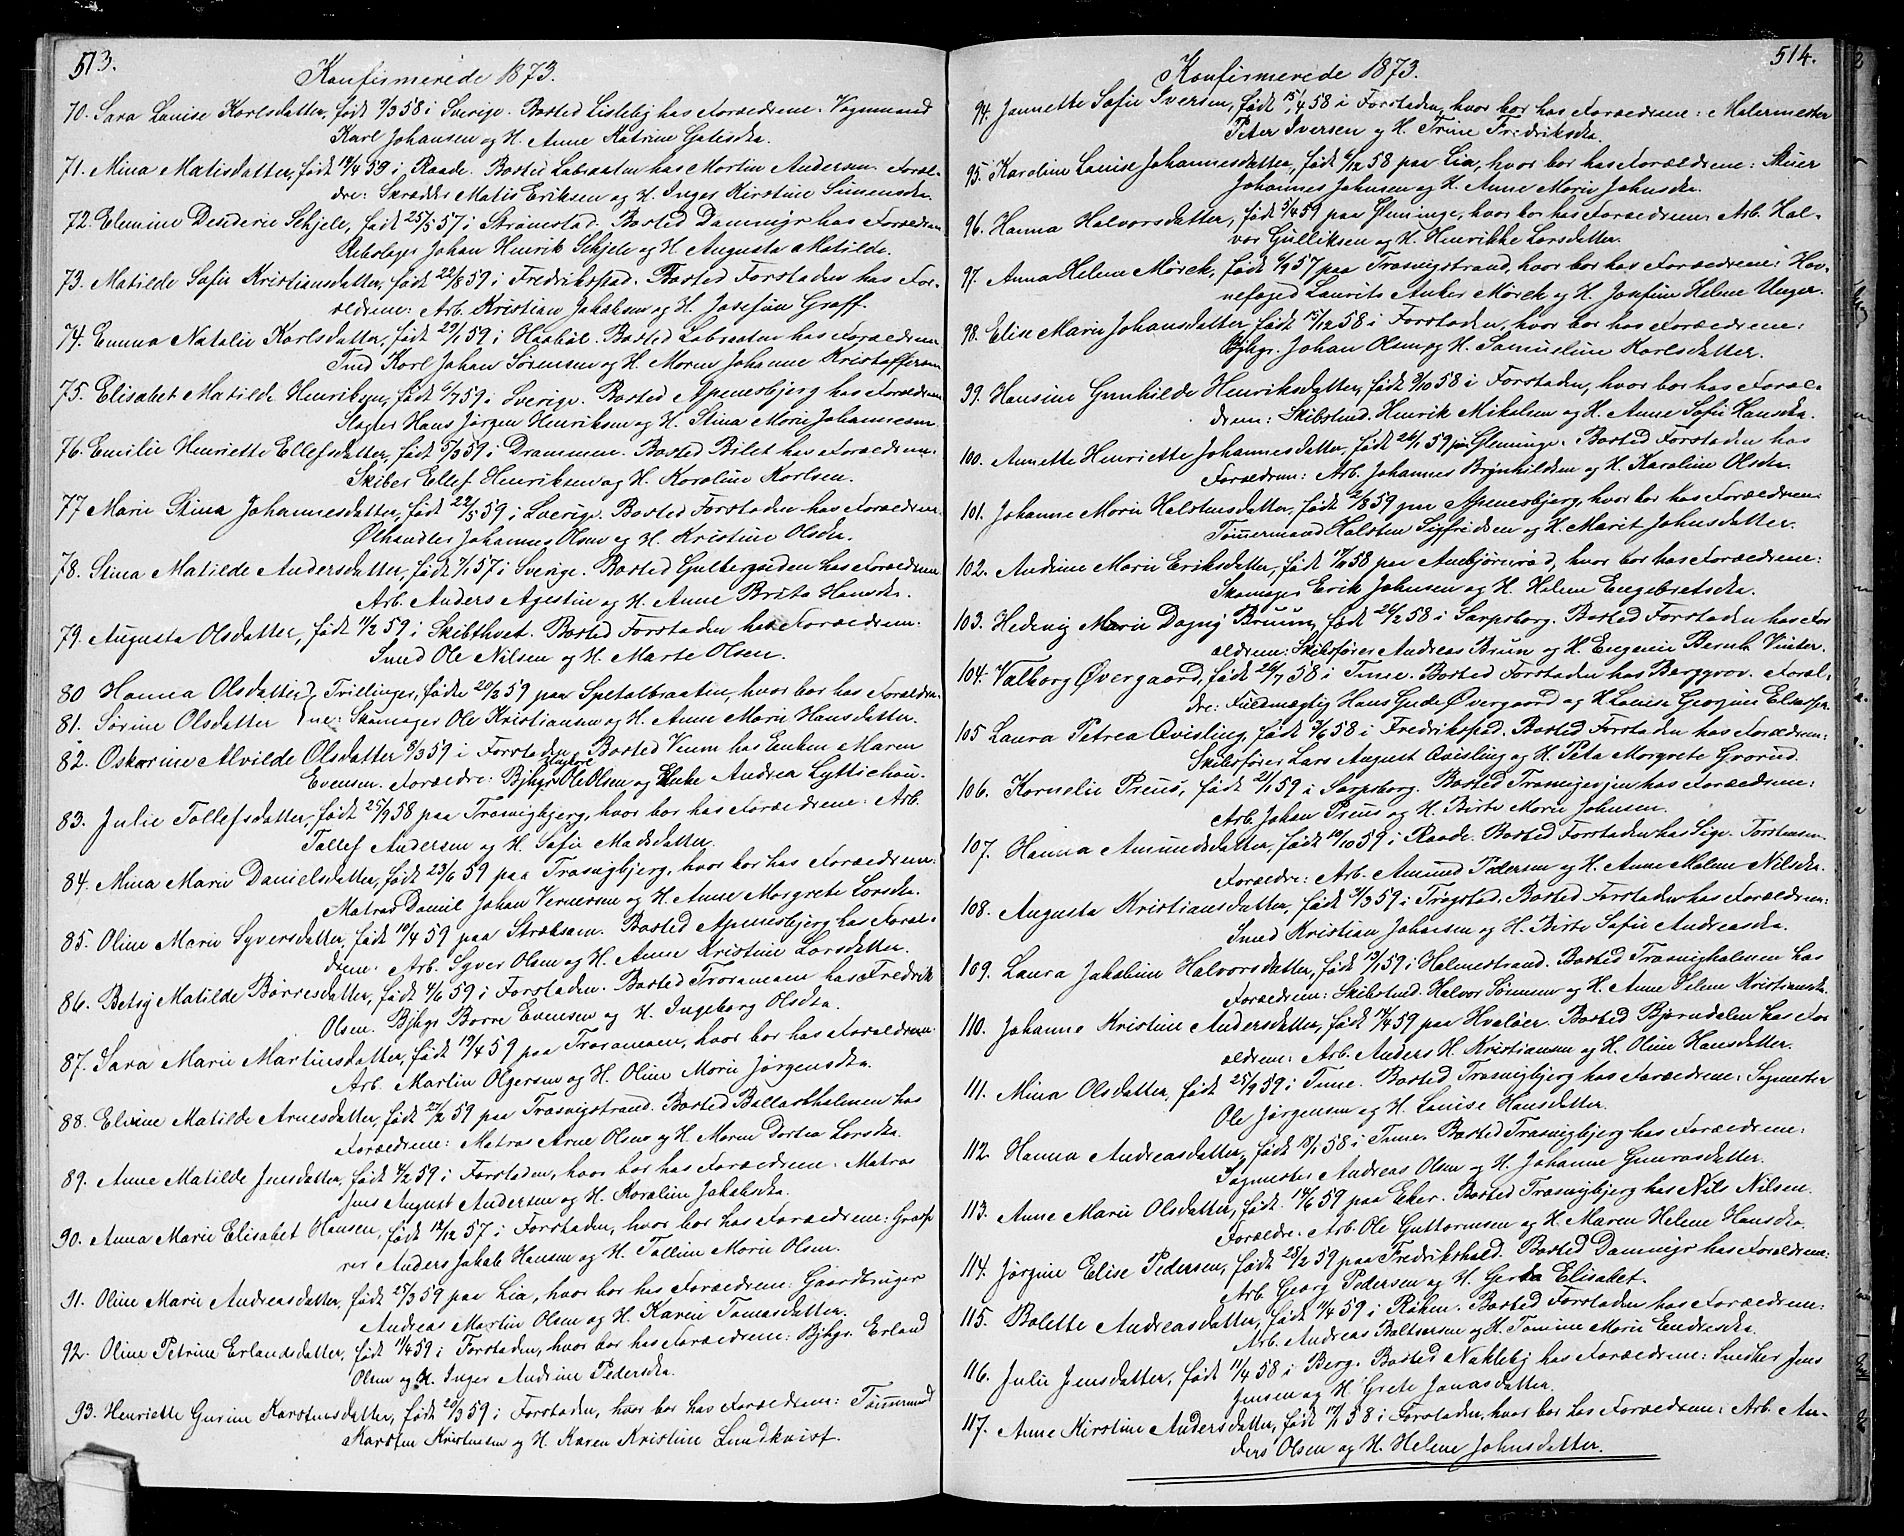 513.
Konfirmerede 1873.
70. Sara Louise Karlsdatter, født 7/3 58 i Sverige. Bosted Lisleby hos Forældrene: Vognmand
Karl Johansen og H. Anne Katrine
71. Mina Matisdatter, født 19/4 59 i Raade. Bosted Labraaten hos Martin Andersen. Foræl-
dre: Skrædder Matis Eriksen og H. Inger Kirstine Simensda.
72. Elemine Desderie Schjele, født 25/5 57 i Strømstad. Bosted Dammyr hos Forældrene
Rebslager Johan Henrik Schjele og H. Augusta Matilde.
73. Matilde Sofie Kristiansdatter, født 22/8 59 i Fredrikstad. Bosted Forstaden hos For-
ældrene: Arb. Kristian Jakobsen og H. Josefine Graff.
74. Emma Natalie Karlsdatter, født 29/1 59 i Haabøl. Bosted Labraaten hos Forældrene
Smd Karl Johan Sørensen og H. Maren Johanne Kristoffersen
75. Elisabet Matilde Henriksen, født 6/7 59 i Sverige. Bosted Apenesbjerg hos Forældrene
Slagter Hans Jørgen Henriksen og H. Stina Marie Johannesen.
76. Emilie Henriette Ellefsdatter, født 5/3 59 i Drammen. Bosted Bilet hos Forældrene:
Skiber Ellef Henriksen og H. Karoline Karlsen.
77 Marie Stina Johannesdatter, født 22/5 59 i Sverige. Bosted Forstaden hos Forældrene:
Ølhandler Johannes Olsen og H. Kristine Olsda.
78. Stina Matilde Andersdatter, født 7/1 57 i Sverige. Bosted Gulbergsiden hos Forældrene
Arb. Anders Agestin og H. Anne Brita Hansda.
79. Augusta Olsdatter, født 11/2 59 i Skibthvet. Bosted Forstaden hos Forældrene:
Smed Ole Nilsen og H. Marte Olsen.
80 Hanna Olsdatter } Tvillinger, fødte 20/2 59 paa Spetalbraaten, hvor bor hos Forældre-
81. Sørine Olsdatter } ne: Skomager Ole Kristiansen og H. Anne Marie Hansdatter.
82. Oskarine Alvilde Olsdatter 8/3 59 i Forstaden. Bosted Veum hos Enken Maren
Evensen. Forældre: Bjhgr Ole Olsen og Enke Andrea Lyttichau.
83. Julie Tollefsdatter, født 25/9 58 paa Trosvigbjerg, hvor bor hos Forældrene: Arb.
Tollef Andersen og H. Sofie Madsdatter.
84. Mina Marie Danielsdatter, født 23/6 59 paa Trosvigbjerg, hvor bor hos Forældrene:
Matros Daniel Johan Vernersen og H. Anne Margrete Larsda.
85. Oline Marie Syversdatter, født 10/4 59 paa Stræksom. Bosted Apenesbjerg hos Foræl-
drene: Arb. Syver Olsen og H. Anne Kristine Larsdatter.
86. Betsy Matilde Børresdatter, født 4/6 59 i Forstaden. Bosted Traramoen hos Fredrik
Olsen. Bjhgr Børre Evensen og H. Ingeborg Olsda.
87. Sara Marie Martinsdatter, født 19/4 59 paa Traramoen, hvor bor hos Forældrene
Arb. Martin Olgersen og H. Oline Marie Jørgensda.
88. Elvine Matilde Arnesdatter, født 27/2 59 paa Trosvigstrand. Bosted Ballastholmen hos
Forældrene: Matros Arne Olsen og H. Maren Dortea Larsda.
89. Anne Matilde Jensdatter, født 4/2 59 i Forstaden, hvor bor hos Forældrene: Matros
Jens August Andersen og H. Karoline Jakobsda.
90. Anna Marie Elisabet Hansen, født 12/12 57 i Forstaden, hvor bor hos Forældrene:
Anders Jakob Hansen og H. Talline Marie Olsen.
91. Oline Marie Andreasdatter, født 25/3 59 paa Lia, hvor bor hos Forældrene: Gaardbruger
Andreas Martin Olsen og H. Karen Tomasdatter.
92. Oline Petrine Erlandsdatter, født 1/4 59 i Forstaden, hvor bor hos Forældrene: Bjhgr. Erland
Olsen og H. Inger Andrine Pedersda.
93. Henriette Gurine Karstensdatter, født 20/3 59 i Forstaden, hvor bor hos Forældrene: Tømmrmnd
Karsten Kristensen og H. Karen Kristine Lundkvist.
514.
Konfirmerede 1873.
94. Jannette Sofie Iversen, født 15/4 58 i Forstaden, hvor bor hos Forældrene: Malermester
Peter Iversen og H. Trine Fredriksda.
95. Karoline Louise Johannesdatter, født 6/12 58 paa Lia, hvor bor hos Forældrene: Skier
Johannes Johnsen og H. Anne Marie Johnsda.
96. Hanna Halvorsdatter, født 5/4 59 paa Gleminge, hvor bor hos Forældrene: Arb. Hal-
vor Gulliksen og H. Henrikke Larsdatter.
97. Anna Helene Mørck, født 6/9 57 paa Trosvigstrand, hvor bor hos Forældrene: Hav-
nefoged Laurits Anker Mørck og H. Josefine Helene Unger.
98. Elise Marie Johansdatter, født 15/12 58 i Forstaden, hvor bor hos Forældrene:
Bjhgr. Johan Olsen og H. Samueline Karlsdatter.
99. Hansine Gunhilde Henriksdatter, født 9/10 58 i Forstaden, hvor bor hos Foræl-
drene: Skibstmd. Henrik Mikalsen og H. Anne Sofie Hansda.
100. Annette Henriette Johannesdatter, født 26/1 59 paa Gleminge. Bosted Forstaden hos
Forældrene: Arb. Johannes Brynhildsen og H. Karoline Olsda.
101. Johanne Marie Halstensdatter, født 2/8 59 paa Apenesbjerg, hvor bor hos Forældrene:
Tømmermand Halsten Sigfridsen og H. Marit Johnsdatter.
102. Andrine Marie Eriksdatter, født 17/6 58 paa Ambjørnrød, hvor bor hos Forældrene:
Skomager Erik Johnsen og H. Helene Engebretsda.
103. Hedevig Marie Dagny Bruun, født 24/2 58 i Sarpsborg. Bosted Forstaden hos For
ældrene: Skibsfører Andreas Brun og H. Eugenie Bernh. Vinter.
104. Valborg Øvergaard, født 26/7 58 i Tune. Bosted Forstaden hos Berggrov. Foræl-
dre: Fuldmægtig Hans Gude Øvergaard og H. Louise Georgine
105 Laura Petrea Qvisling, født 3/6 58 i Fredrikstad. Bosted Forstaden hos Forældrene:
Skibsfører Lars August Qvisling og H. Peta Margrete Grorud.
106. Kornelie Preus, født 21/1 59 i Sarpsborg. Bosted Trosvigesjen hos Forældrene:
Arb. Johan Preus og H. Birte Marie Johnsen.
107. Hanna Amundsdatter, født 10/10 59 i Raade. Bosted Forstaden hos Sige. Torstensen.
Forældre: Arb. Amund Pedersen og H. Anne Malene Nilsda.
108. Augusta Kristiansdatter, født 31/3 59 i Trøgstad. Bosted Forstaden hos Forældrene:
Smed Kristian Johansen og H. Birte Sofie Andreasda.
109. Laura Jakobine Halvorsdatter, født 13/1 59 i Holmestrand. Bosted Trosvigholmen hos
Forældrene: Skibstmd. Halvor Sørensen og H. Anne Selene Kristiansda.
110. Johanne Kristine Andersdatter, født 14/4 59 paa Hvaløer. Bosted Bjørndalen hos For
ældrene: Arb. Anders H. Kristiansen og H. Oline Hansdatter.
111. Mina Olsdatter, født 25/9 59 i Tune. Bosted Trosvigbjerg hos Forældrene: Sagmester
Ole Jørgensen og H. Louise Hansdatter.
112. Hanna Andreasdatter, født 18/1 58 i Tune. Bosted Trosvigbjerg hos Forældrene:
Sagmester Andreas Olsen og H. Johanne Gunrosdatter.
113. Anne Marie Olsdatter, født 14/6 59 paa Eker. Bosted Trosvigbjerg hos Nils Nilsen.
Forældre: Arb. Ole Guttormsen og H. Maren Helene Hansda.
114. Jørgine Elise Pedersen, født 28/2 59 paa Fredrikshald. Bosted Dammyr hos Forældrene:
Arb. Georg Pedersen og H. Gerda Elisabet.
115. Bolette Andreasdatter, født 11/4 59 i Røken. Bosted Forstaden hos Forældrene:
Arb. Andreas Baltsersen og H. Tomine Marie Endresda.
116. Julie Jensdatter, født 11/4 58 i Berg. Bosted Nakleby hos Forældrene: Snedker Jens
Jensen og H. Grete Jonasdatter.
117. Anne Kirstine Andersdatter, født 17/1 58 i Forstaden, hvor bor hos Forældrene: Arb. An-
ders Olsen og H. Helene Johnsdatter.